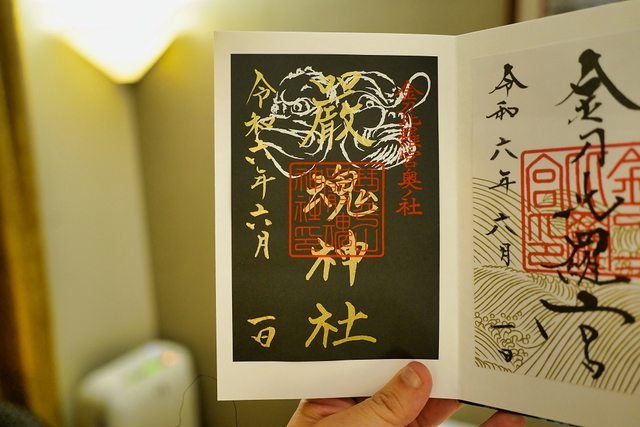 金刀比羅宮
令和六年六月一日
金刀比羅宮奥社
嚴魂神社
令和六年六月一日